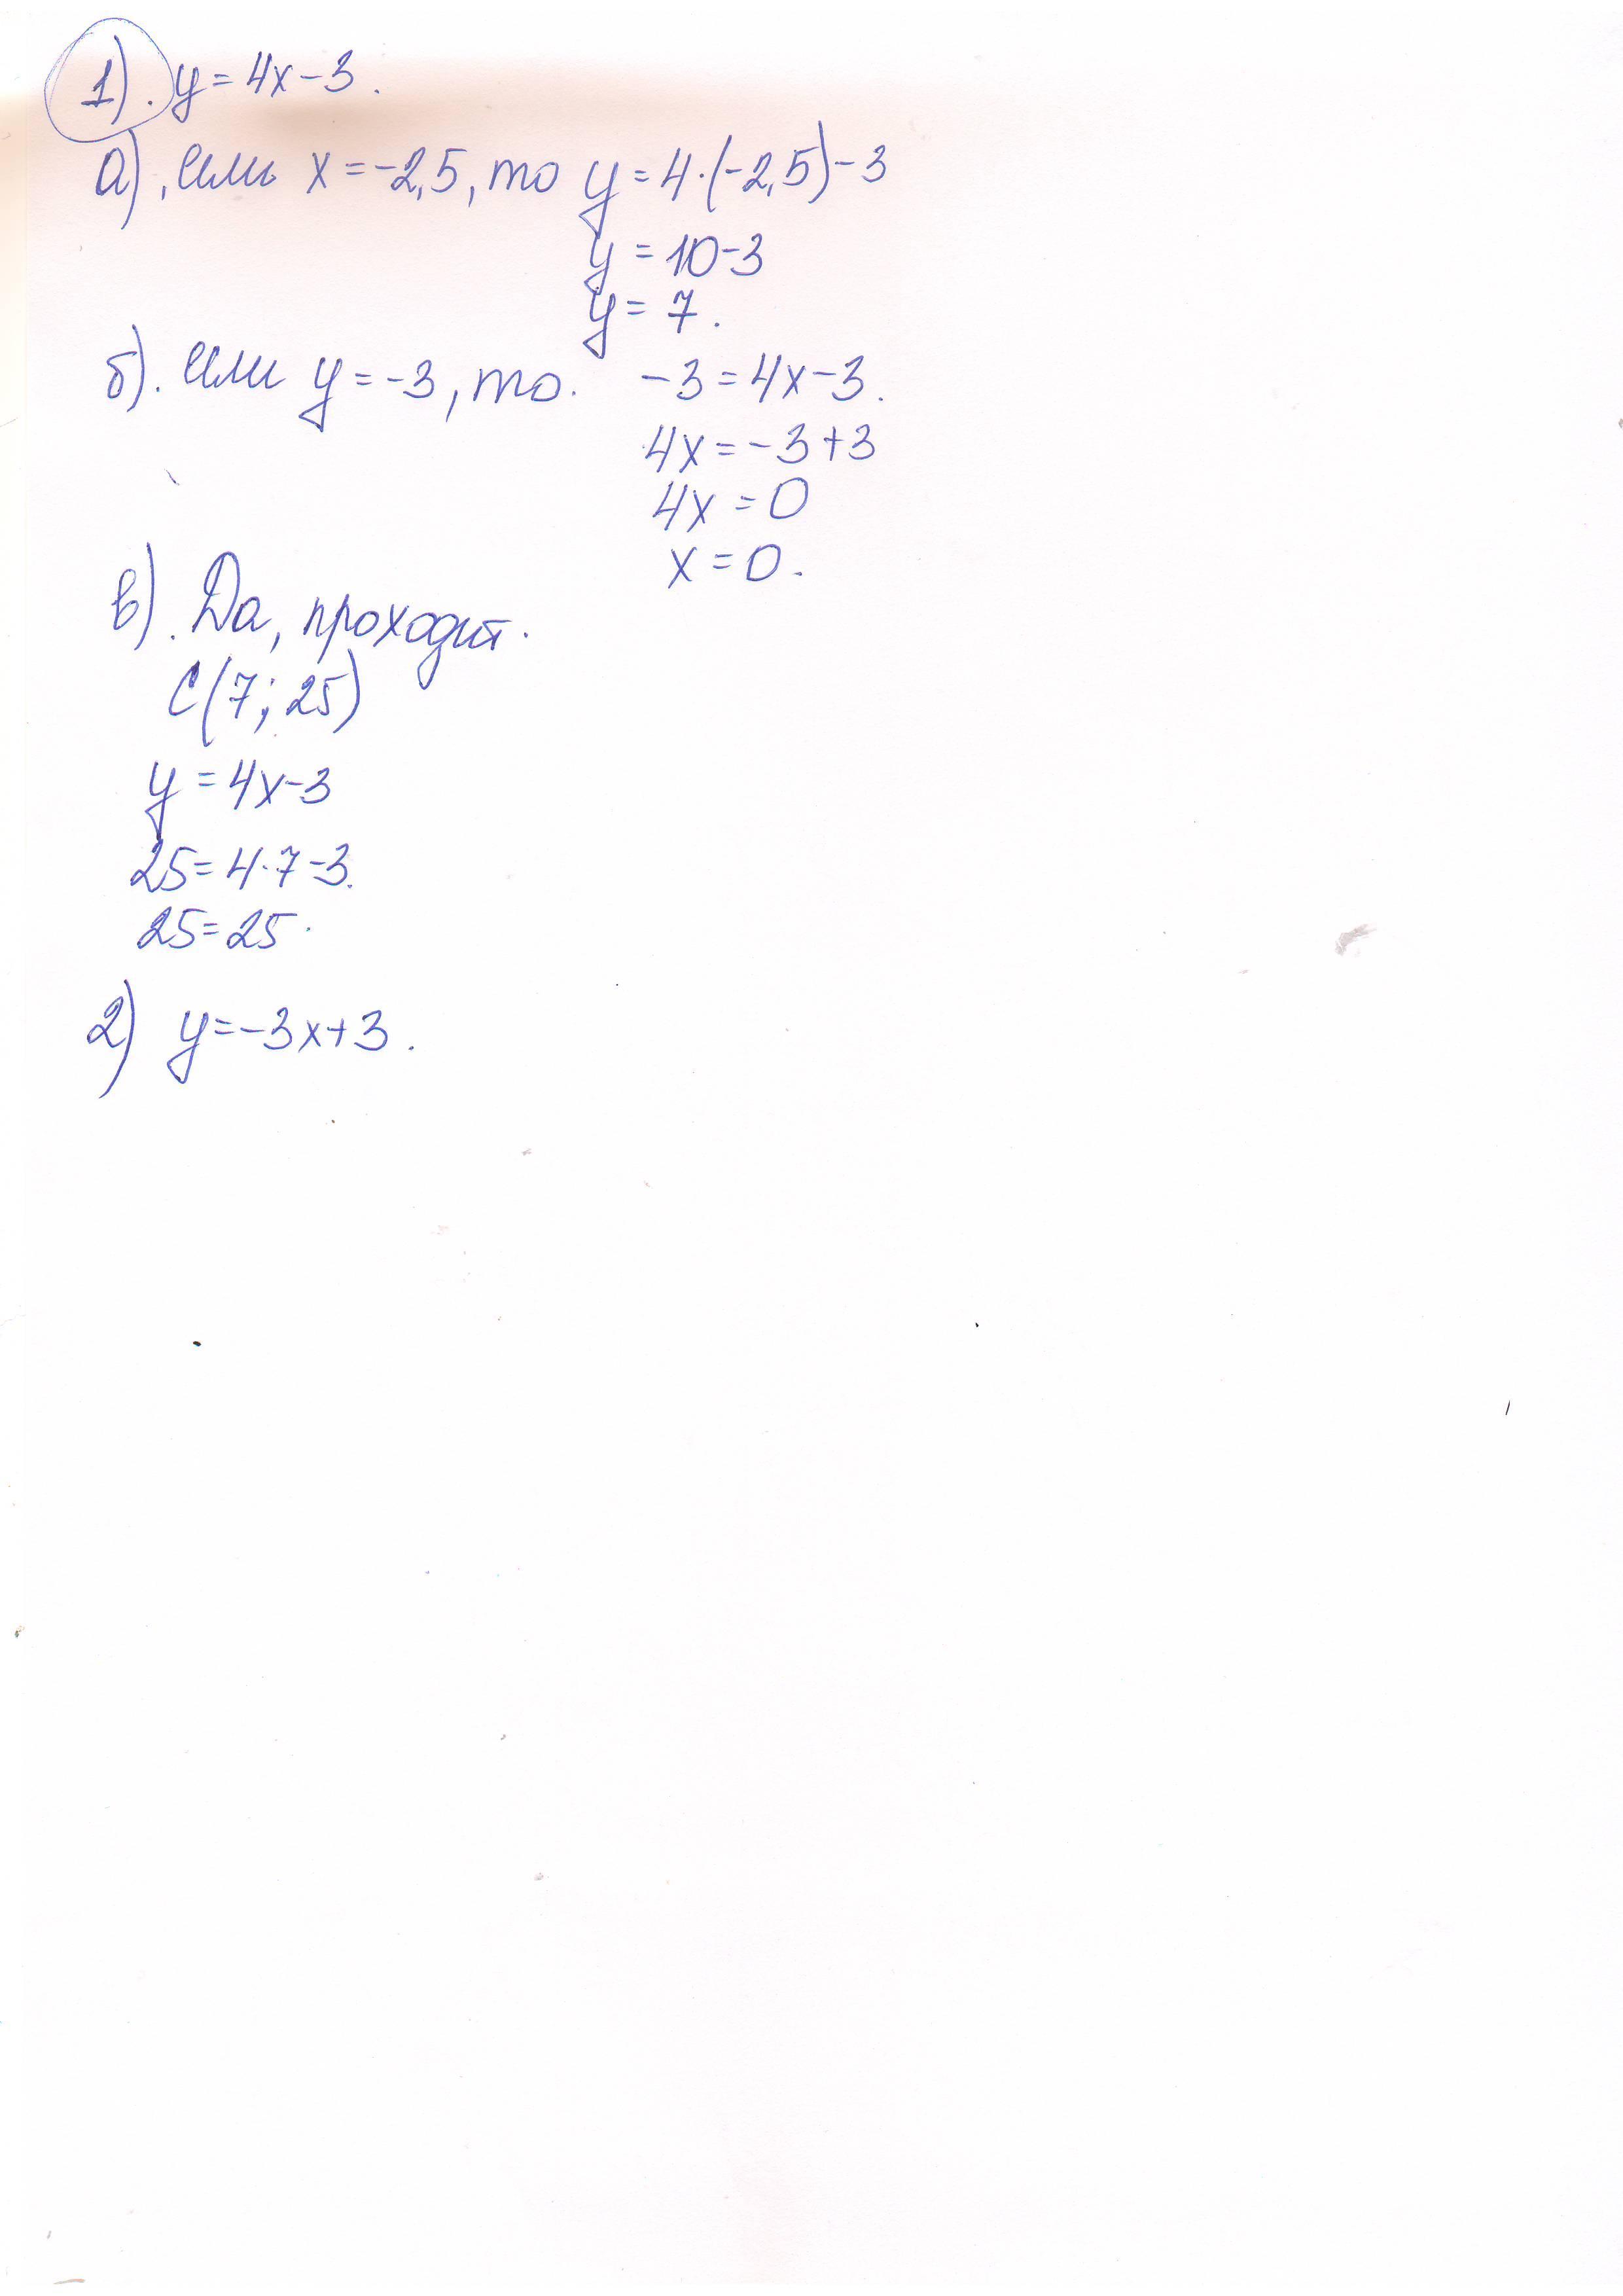 1). y = 4x - 3.
а), если x = -2,5, то y = 4·(-2,5) - 3
y = 10 - 3
y = 7.
б). если y = -3, то. -3 = 4x - 3.
4x = -3 + 3
4x = 0
x = 0.
в). Да, проходит.
C(7; 25)
y = 4x - 3
25 = 4·7 - 3.
25 = 25.
2) y = -3x + 3.